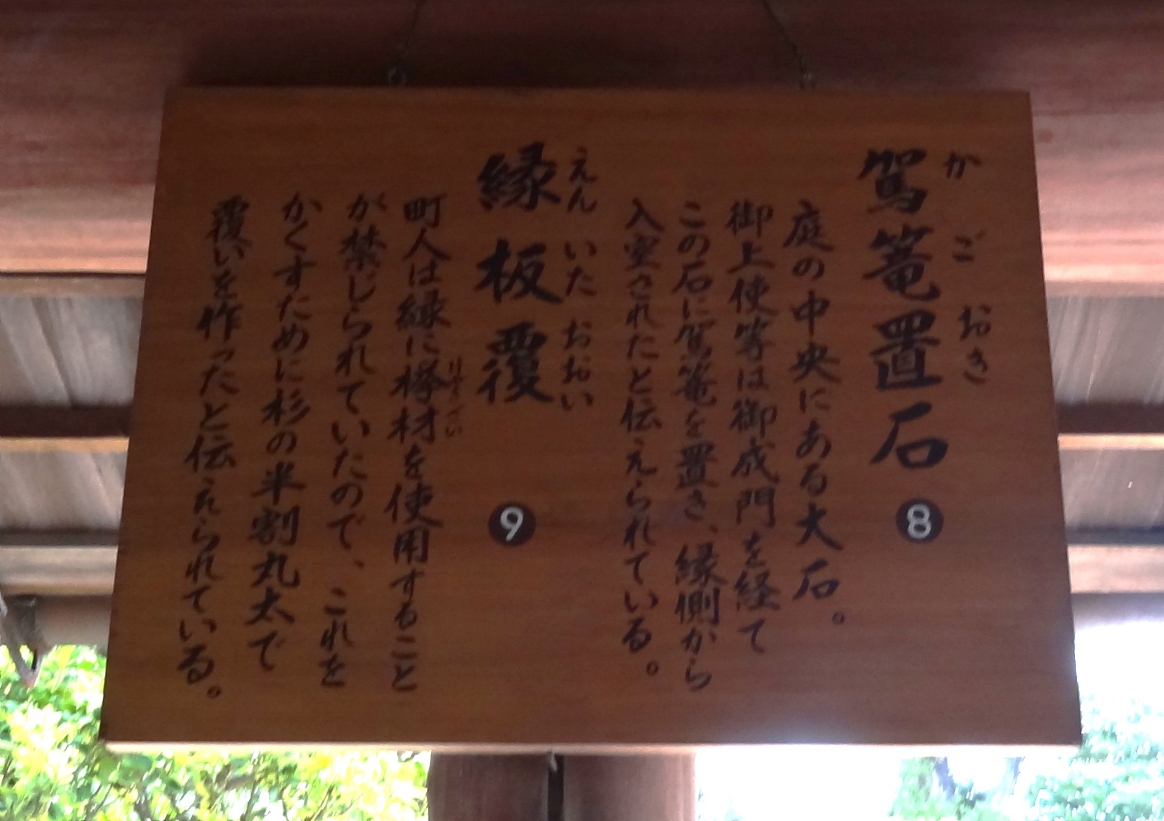 駕篭置石 ❽
かごおき
庭の中央にある大石。
御上使等は御成門を経て
この石に駕篭を置き、縁側から
入室されたと伝えられている。
縁板覆 ❾
えんいたおおい
町人は縁に欅材を使用すること
が禁じられていたので、これを
かくすために杉の半割丸太で
覆いを作ったと伝えられている。